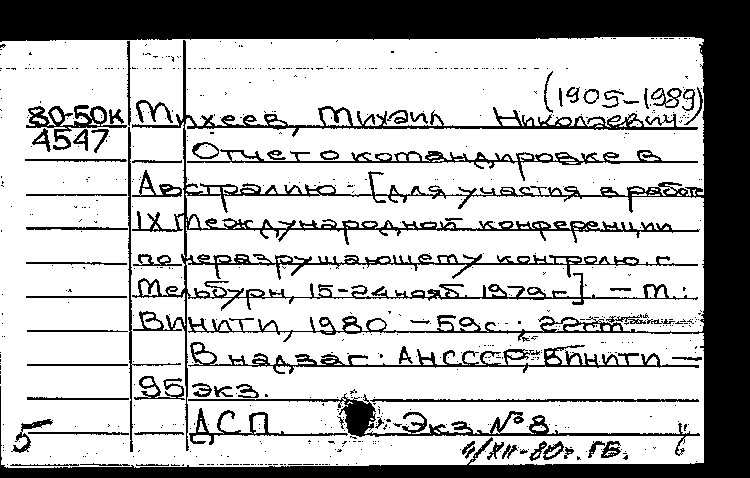 (1905-1989)
80-50к Михеев, Михаил Николаевич
4547
Отчет о командировке в
Австралию: [для участия в работе
IX Международной конференции
по неразрушающему контролю. г.
Мельбурн, 15-24 нояб. 1979 г.]. — М.:
ВИНИТИ, 1980. — 59 с.; 22 см.
В надзаг: АН СССР, ВИНИТИ —
95 экз.
ДСП. Экз. № 8.
5 4/XII-80г. ГБ.